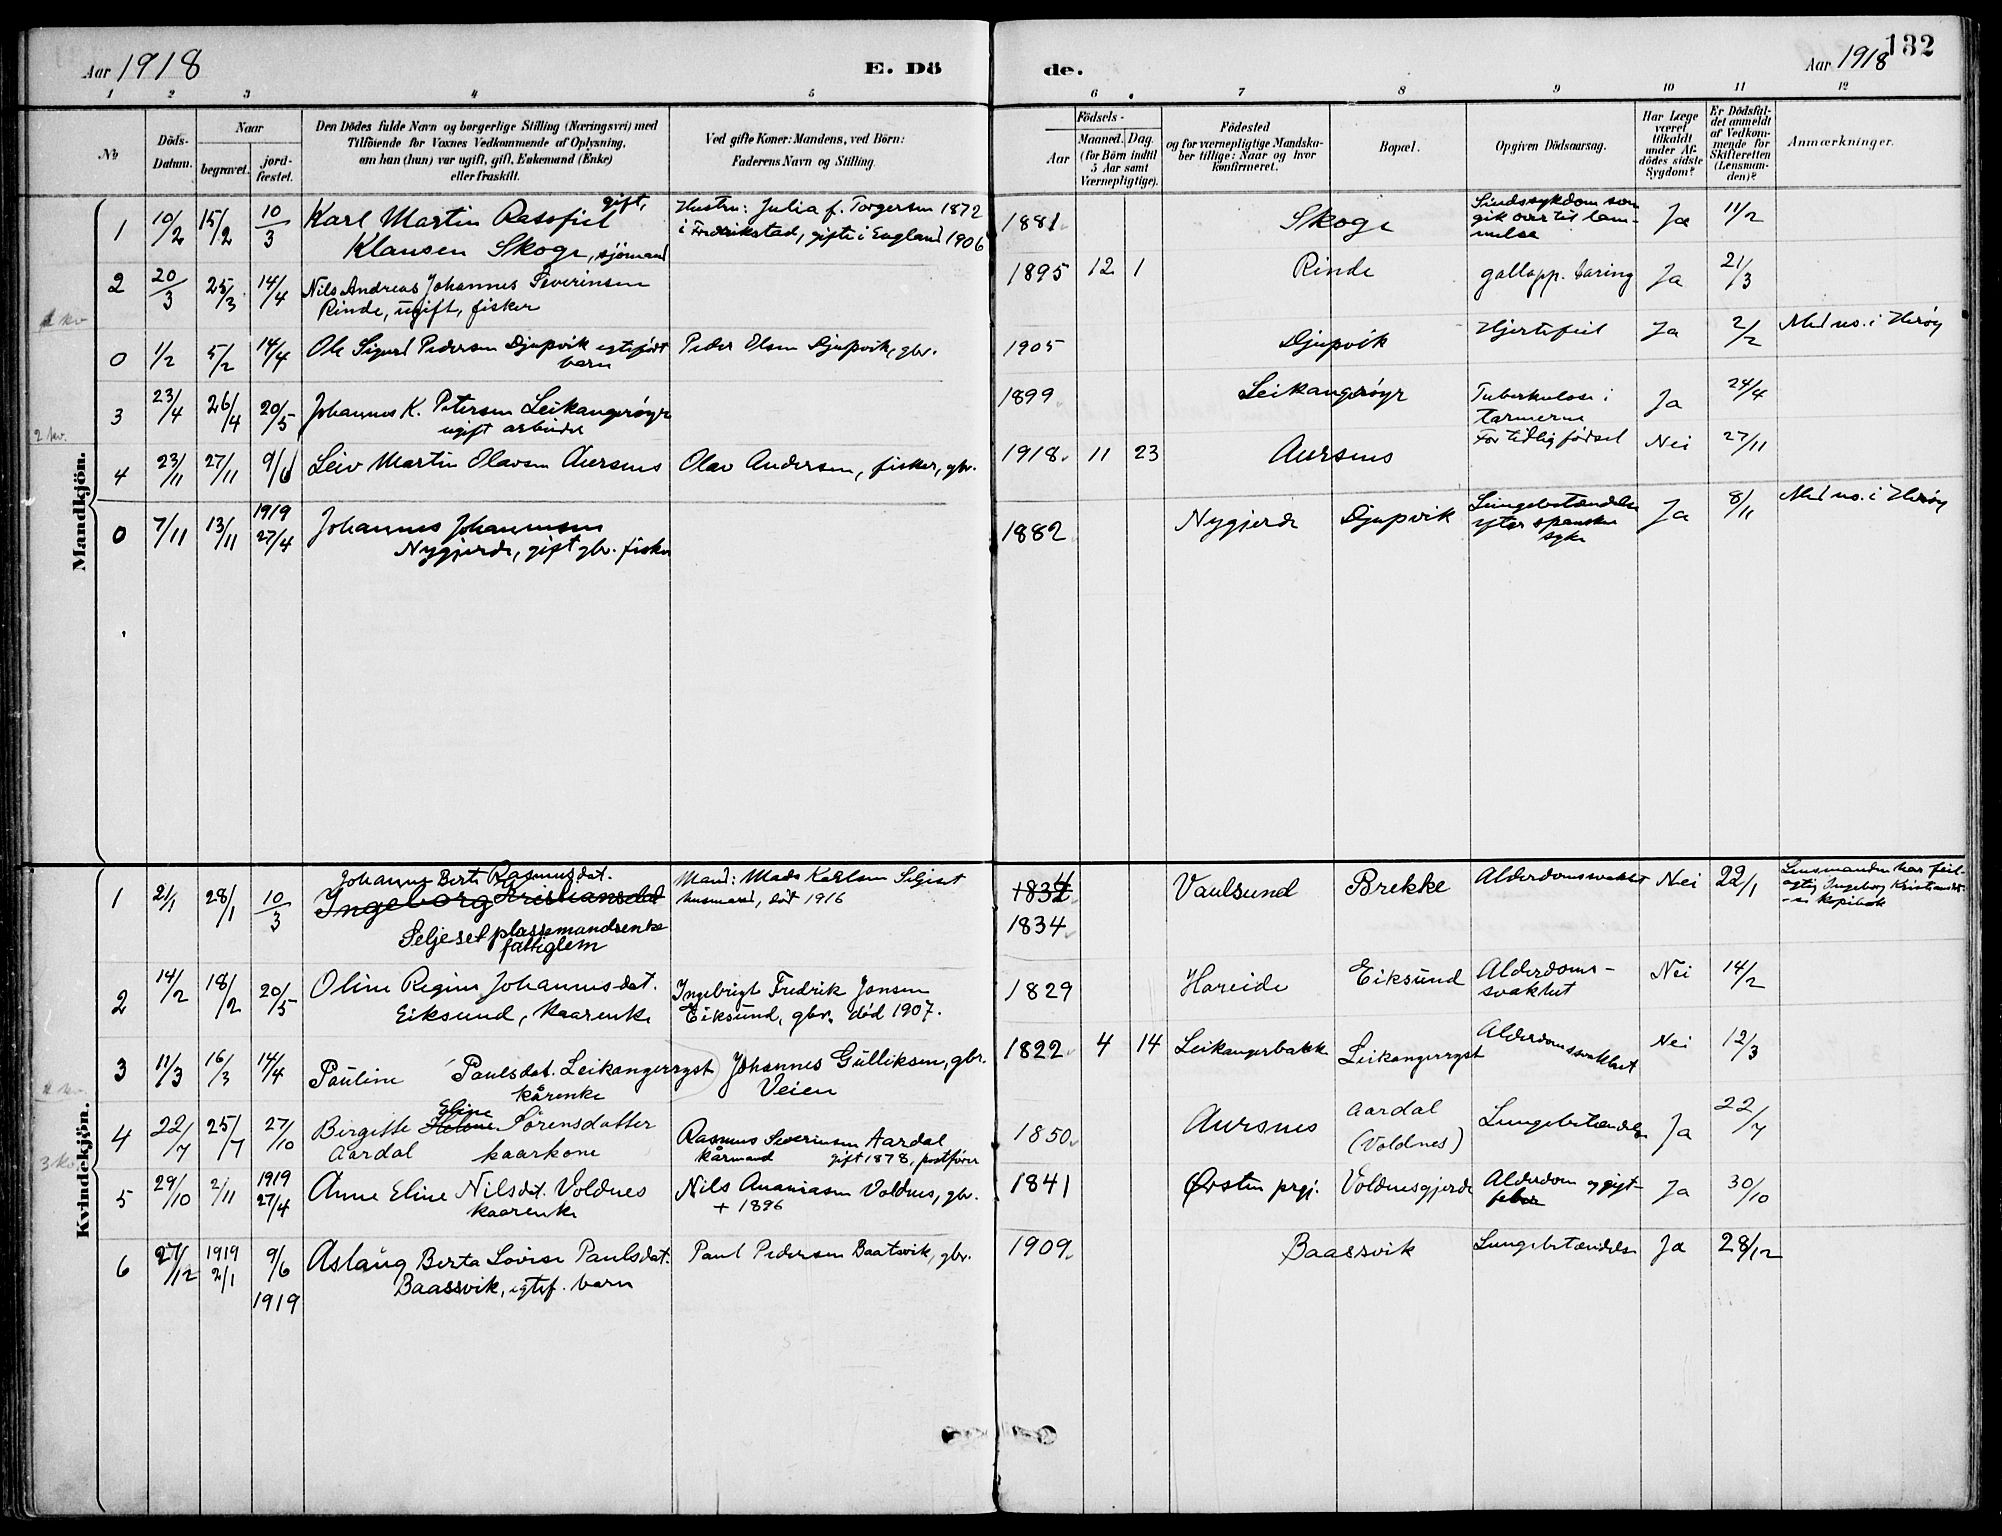 Aar 1918
E. Dö
de.
Aar 1918
132
1 2 3 4 5 6 7 8 9 10 11 12
No
Döds-
Datum.
Naar
begravet.
jord-
fæstet.
Den Dödes fulde Navn og borgerlige Stilling (Næringsvei) med
Tilföiende for Voxnes Vedkommende af Oplysning,
om han (hun) var ugift, gift, Enkemand (Enke)
eller fraskilt.
Ved gifte Koner: Mandens, ved Börn:
Faderens Navn og Stilling.
Födsels-
Aar
Maaned.
Dag.
(for Börn indtil
5 Aar samt
Værnepligtige).
Födested
og for værnepligtige Mandska-
ber tillige: Naar og hvor
konfirmeret.
Bopæl.
Opgiven Dödsaarsag.
Har Læge
været
tilkaldt
under Af-
dödes sidste
Sygdom?
Er Dödsfal-
det anmeldt
af Vedkom-
mende for
Skifteretten
(Lensman-
den)?
Anmærkninger.
Mandkjön.
1 10/2 15/2 10/3 Karl Martin gift,
Klausen Skoge, sjömand
Hustru: Julia f. Torgersen 1872
i Fredrikstad, gifte i England 1906
1881 Skoge Sindssykdom som
gik over til lam-
melse
Ja 11/2
2 20/3 25/3 14/4 Nils Andreas Johannes Severinsen
Rinde, ugift, fisker
1895 12 1 Rinde gallopp. tæring Ja 21/3
0 1/2 5/2 14/4 Ole Sigurd Pedersen Djupvik egtefødt
barn
Peder Olsen Djupvik, gbr.
1905 Djupvik Hjertefeil Ja 2/2 Med no. i Herøy
3 23/4 26/4 20/5 Johannes K. Petersen Leikangerøyr
ugift arbeider
1899 Leikangerøyr Tuberkulose i
tarmerne
Ja 24/4
2 kv.
4 23/11 27/11 9/6 Leiv Martin Olavsen Aursnes Olav Andersen, fisker, gbr.
1918 11 23 Aursnes For tidlig fødsel Nei 27/11
0 7/11 13/11 1919
27/4
Johannes Johannesen
Nygjerde, gift gbr. fisker
1882 Nygjerde Djupvik Lungebetændelse
efter spanske
syke
Ja 8/11 Med no. i Herøy
Kvindekjön.
1 21/1 28/1 10/3 Johanne Berte Rasmusdat.
Ingeborg Kristiansdat
Seljeset plassemandsenke
fattiglem
Mand: Mads Karlsen Seljeset
husmand, död 1916
1834
1834
Vaulsund Brekke Alderdomssvakhet Nei 22/1 Lensmanden har feil-
agtig Ingeborg Kristiansdt.
i kopibok
2 14/2 18/2 20/5 Oline Regine Johannesdat.
Eiksund, kaarenke
Ingebrigt Fredrik Jonsen
Eiksund, gbr. død 1907.
1829 Hareide Eiksund Alderdoms-
svakhet
Nei 14/2
3 11/3 16/3 14/4 Pauline Paulsdat. Leikangerrygst
kårenke
Johannes Gulliksen, gbr.
Veien
1822 4 14 Leikangerbakk Leikangerrygst Alderdomssvakhet Nei 12/3
4 22/7 25/7 27/10 Birgitte Helene Eline Sørensdatter
Aardal kaarkone
Rasmus Severinsen Aardal
kårmand gift 1878, postfører
1850 Aursnes Aardal
(Voldnes)
Lungebetændelse Ja 22/7
3 kv.
5 29/10 2/11 1919
27/4
Anne Eline Nilsdat. Voldnes
kaarenke
Nils Ananiasen Voldnes, gbr.
+ 1896
1841 Ørsten prgj. Voldnesgjerde Alderdom og gigt-
feber
Ja 30/10
6 27/12 1919
2/1
9/6
1919
Aslaug Berta Lovise Paulsdat.
Baassvik, egtef. barn
Paul Pedersen Baatsvik, gbr.
1909 Baassvik Lungebetændelse Ja 28/12